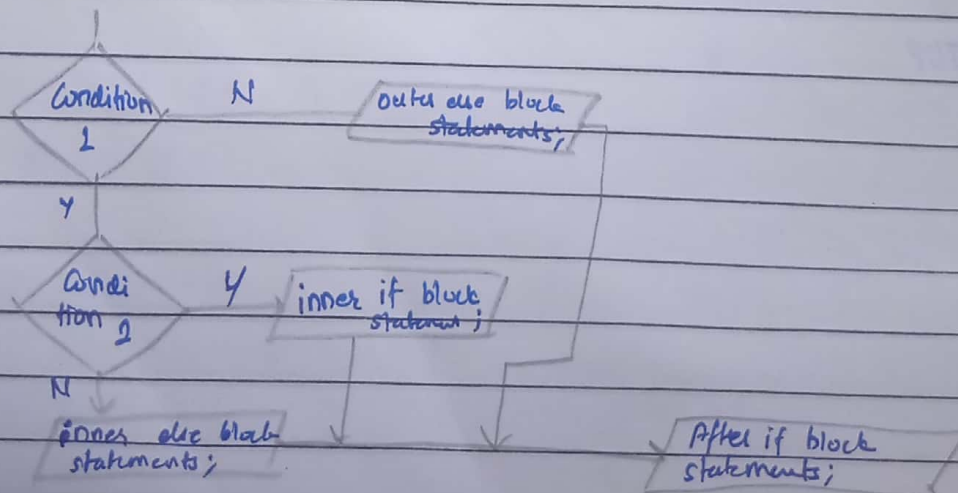 Condition
1
N
outer else block
statements;
Y
Condi
tion 2
Y
inner if block
statement;
N
inner else block
statements;
After if block
statements;